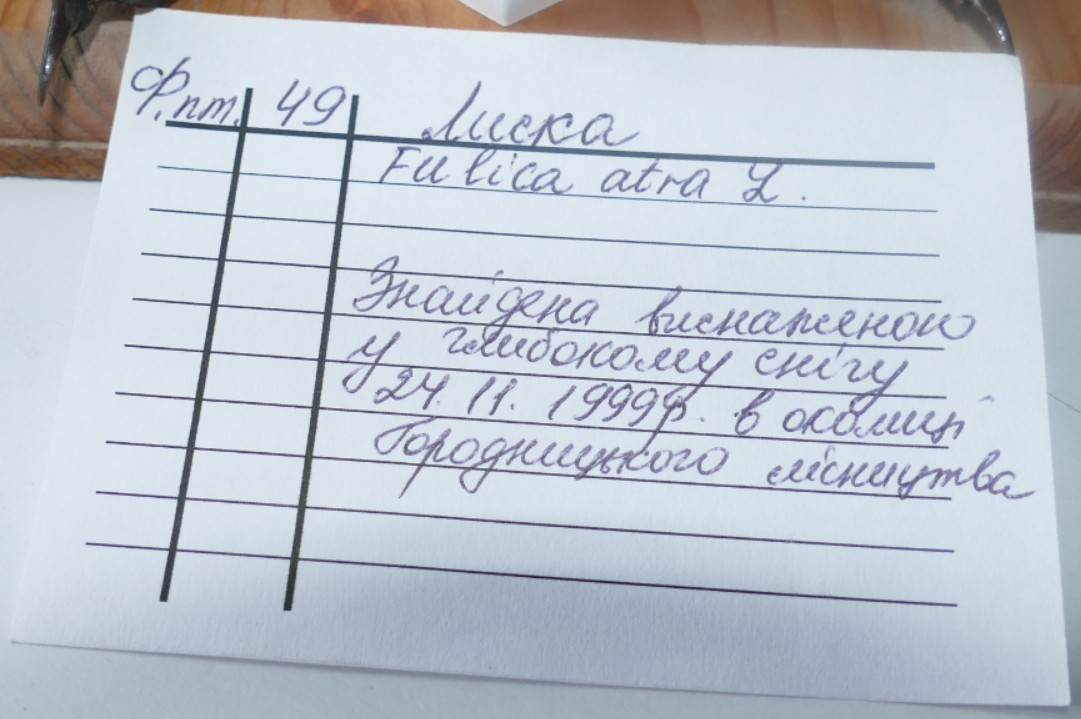 Ф.пт. 49 Лиска
Fulica atra L.
Знайдена виснаженою
у глибокому снігу
24.11.1999р. в околиці
Городницького лісництва